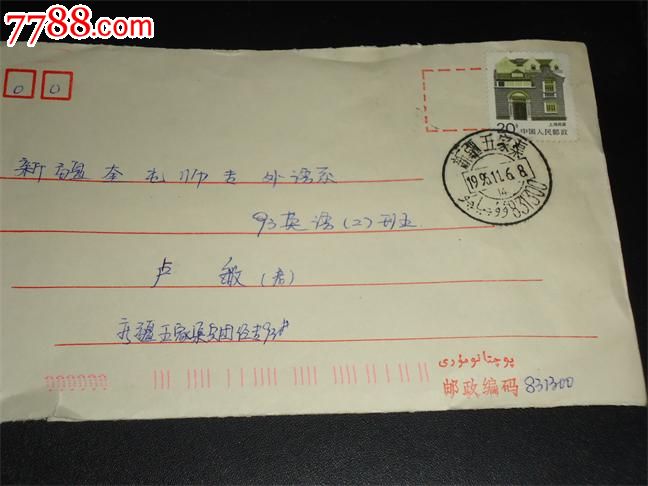 7788.com
0 0
上海民居
20分
中国人民邮政
新疆五家渠
1995.11.6.8
14
831300
新疆奎屯师专外语系
93英语(2)班
卢 敏(者)
新疆五家渠兵团经专93
پوچتا نومۇرى
邮政编码 831300